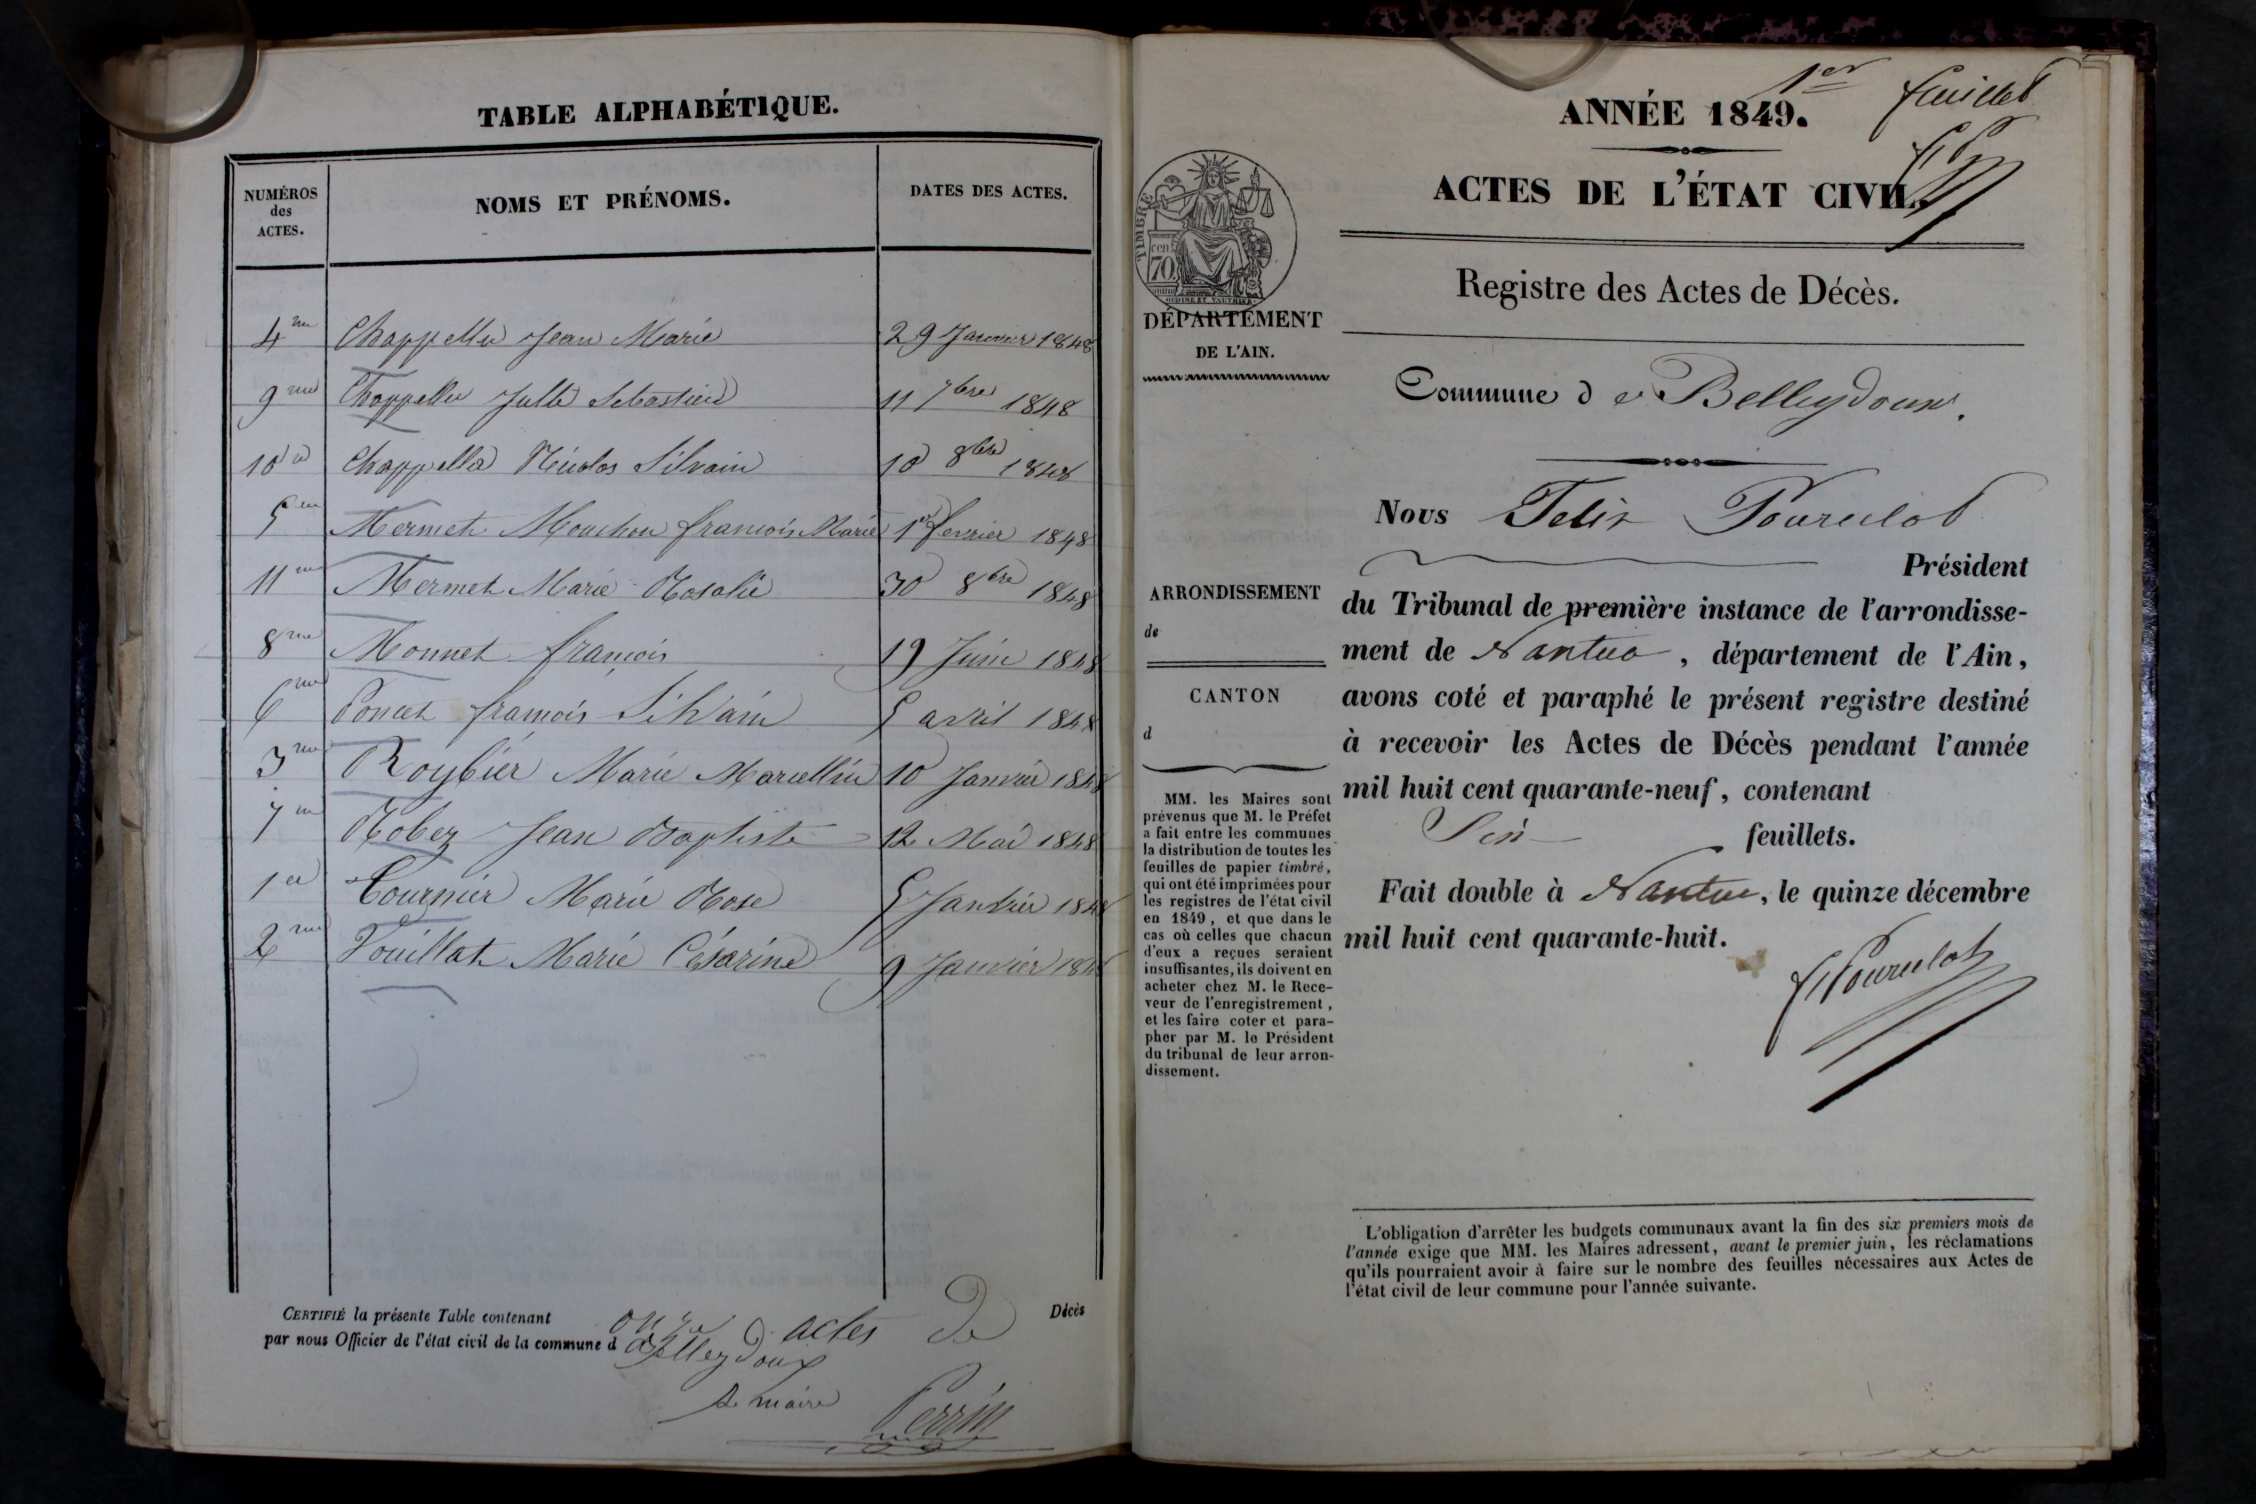 TABLE ALPHABÉTIQUE.
NUMÉROS
des
ACTES.
NOMS ET PRÉNOMS.
DATES DES ACTES.
4me Chappellu Jean Marie 29 Janvier 1848
9me Chappellu Julle Sebastien 11 7bre 1848
10 Chappella Nicolas Silvain 10 8bre 1848
5me Mermet Mouchon francois Marie 1er fevrier 1848
11me Mermet Marie Rosalie 30 8bre 1848
8me Monnet francois 19 Juin 1848
6me Poncet francois Silvain 5 avril 1848
3me Roybier Marie Marcellin 10 Janvier 1848
7me Robez Jean Baptiste 12 Mai 1848
1er Tournier Marie Rose 5 Janvier 1848
2me Vuillat Marie Césarine 9 Janvier 1848
CERTIFIÉ la présente Table contenant onze actes de Décès
par nous Officier de l'état civil de la commune d Belleydoux
le maire Perrin
1er feuillet
ANNÉE 1849.
ACTES DE L'ÉTAT CIVIL.
TIMBRE
70 cen
DÉPARTEMENT
DE L'AIN.
Registre des Actes de Décès.
Commune de Belleydoux.
Nous Felix Pourcelot
Président
du Tribunal de première instance de l'arrondisse-
ment de Nantua, département de l'Ain,
avons coté et paraphé le présent registre destiné
à recevoir les Actes de Décès pendant l'année
mil huit cent quarante-neuf, contenant
feuillets.
Fait double à Nantua, le quinze décembre
mil huit cent quarante-huit.
F Pourcelot
ARRONDISSEMENT
de
CANTON
d
MM. les Maires sont
prévenus que M. le Préfet
a fait entre les communes
la distribution de toutes les
feuilles de papier timbré,
qui ont été imprimées pour
les registres de l'état civil
en 1849, et que dans le
cas où celles que chacun
d'eux a reçues seraient
insuffisantes, ils doivent en
acheter chez M. le Rece-
veur de l'enregistrement,
et les faire coter et para-
pher par M. le Président
du tribunal de leur arron-
dissement.
L'obligation d'arrêter les budgets communaux avant la fin des six premiers mois de
l'année exige que MM. les Maires adressent, avant le premier juin, les réclamations
qu'ils pourraient avoir à faire sur le nombre des feuilles nécessaires aux Actes de
l'état civil de leur commune pour l'année suivante.